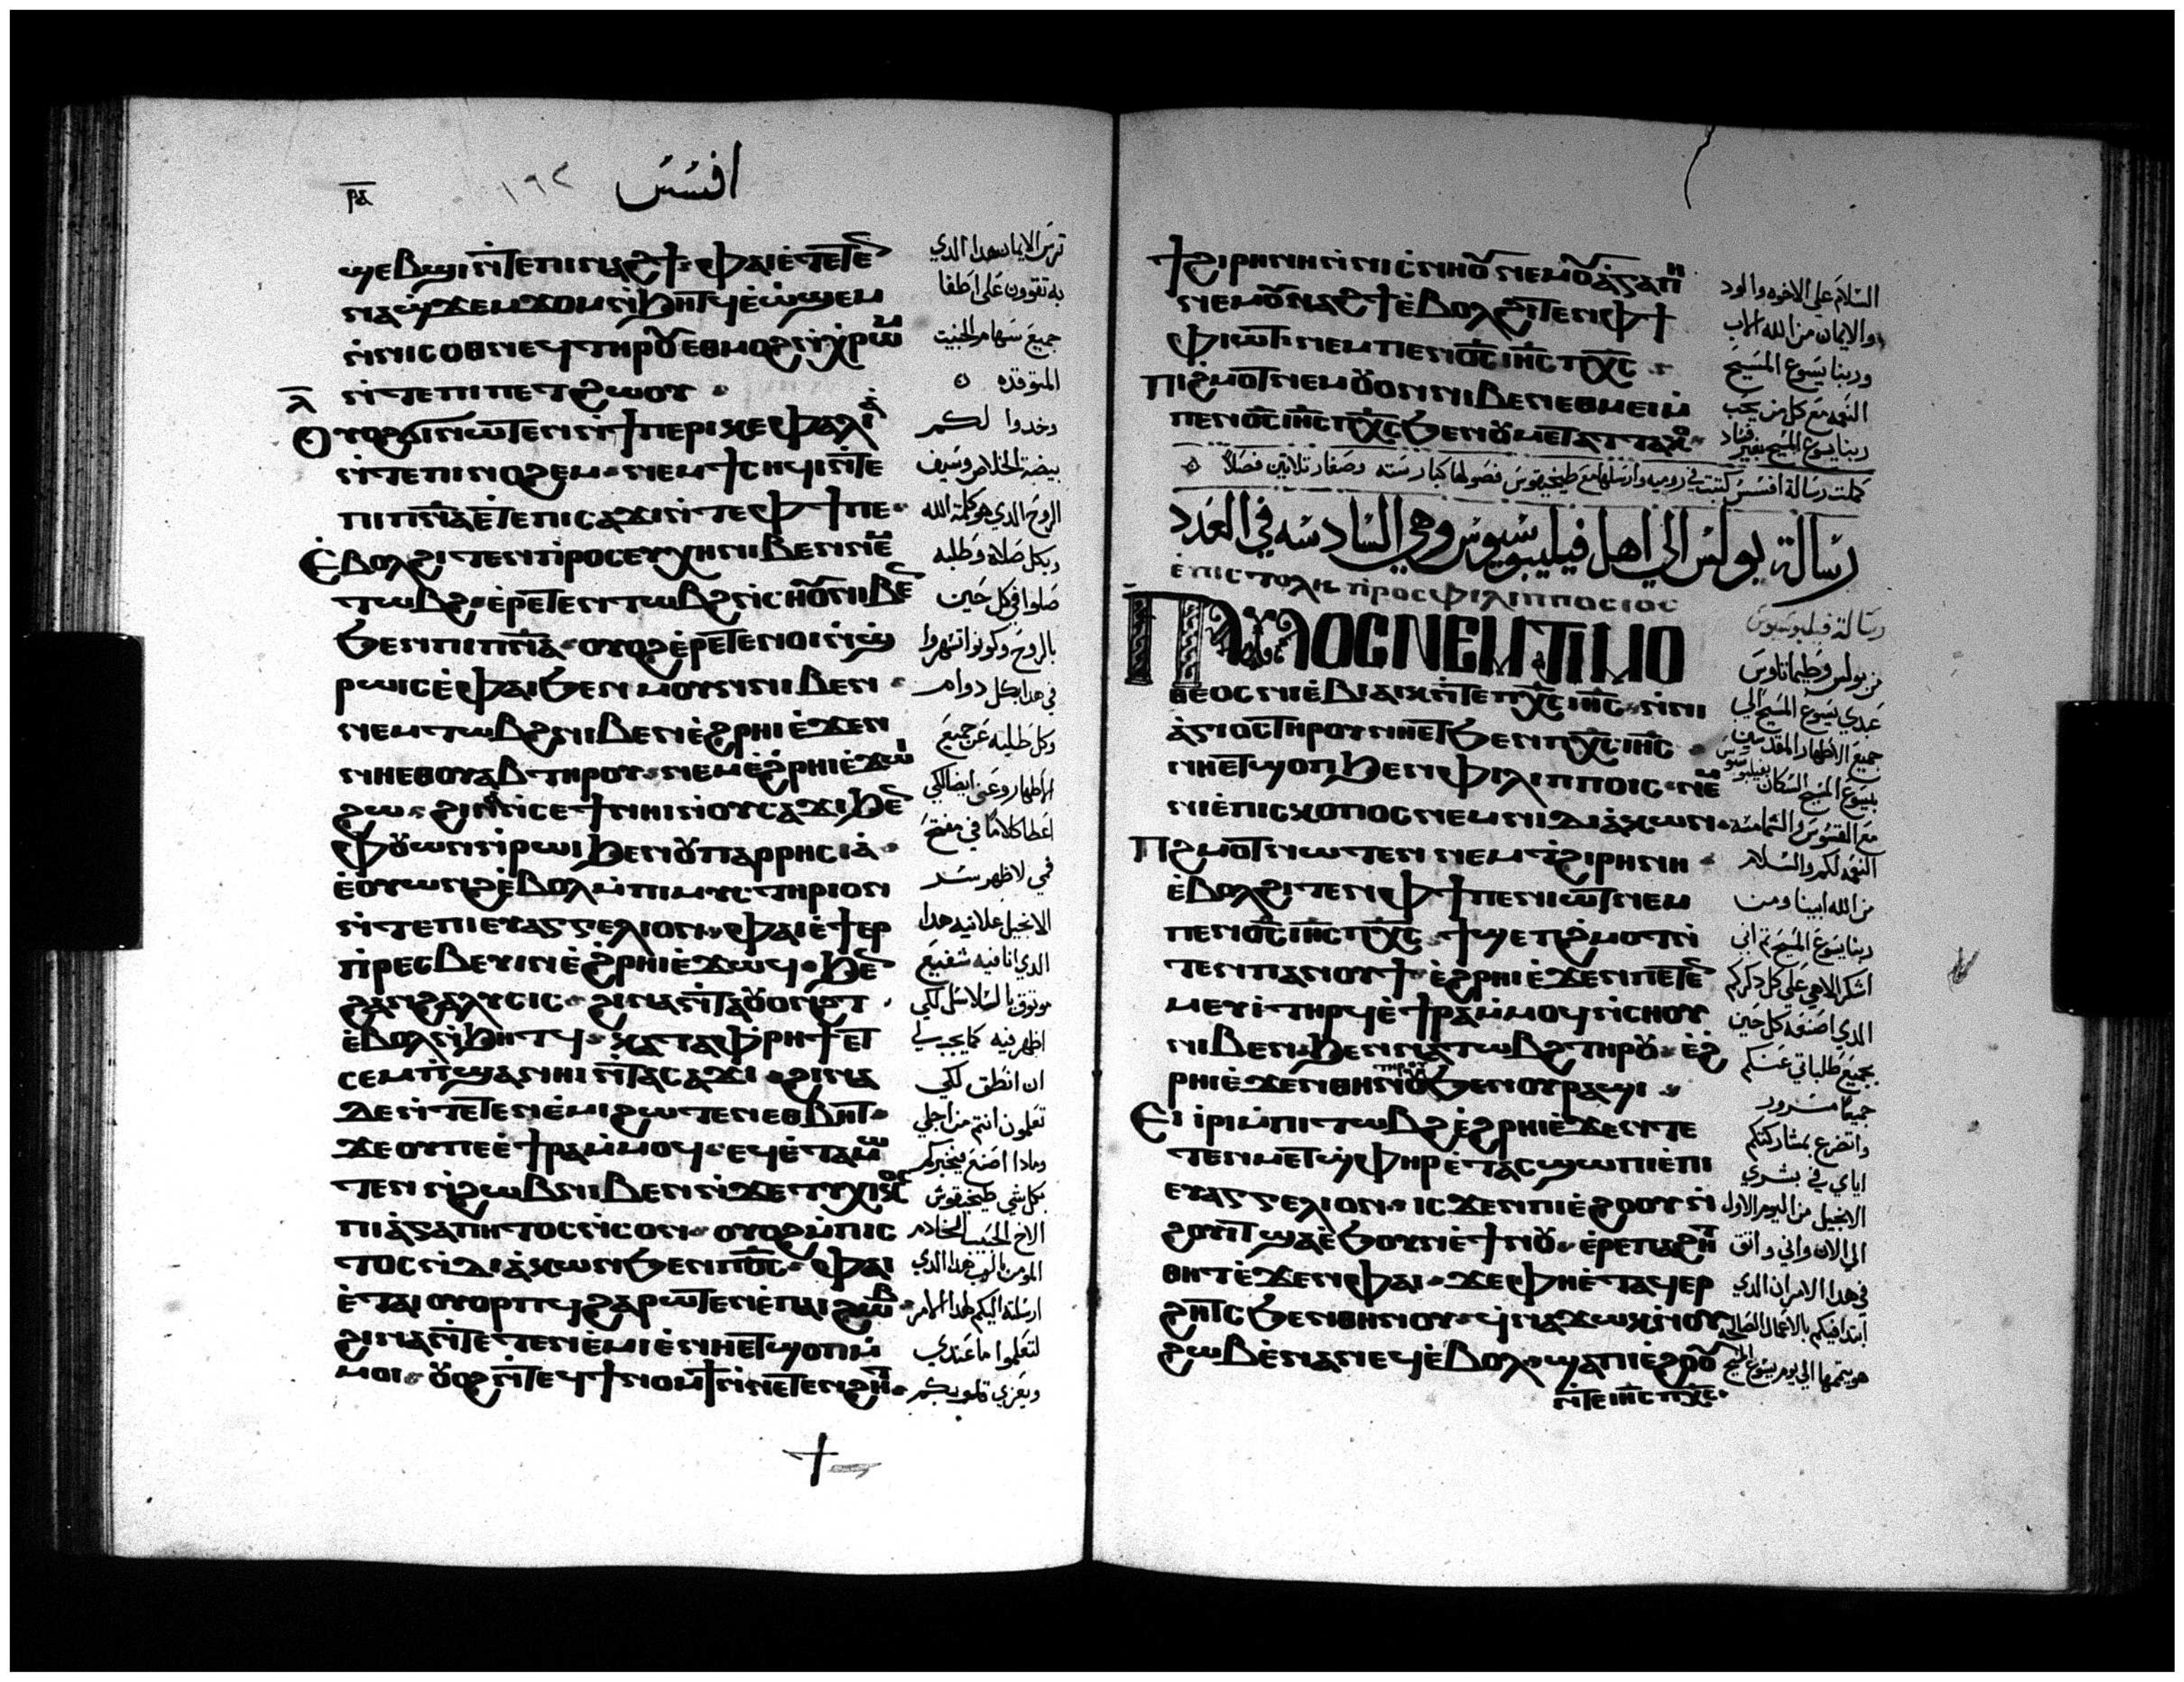 افسس
١٩٢
ⲣ̅ⲇ̅
ϣⲉⲃϣⲓ ⲛ̀ⲧⲉ ⲡⲓⲛⲁϩϯ ⲫⲁⲓ ⲉ̀ⲧⲉⲧⲉ
ⲛⲁϣϫⲉⲙϫⲟⲙ ⲛ̀ϧⲏⲧϥ ⲉ̀ⲱ̀ϣⲉⲙ
ⲛ̀ⲛⲓⲥⲟⲑⲛⲉϥ ⲧⲏⲣⲟⲩ ⲉⲑⲙⲟϩ ⲛ̀ⲭⲣⲱⲙ
ⲛ̀ⲧⲉ ⲡⲓⲡⲉⲧϩⲱⲟⲩ
ⲗ̅
Ⲟⲩⲟϩ ϭⲓ ⲛⲱⲧⲉⲛ ⲛ̀ϯⲡⲉⲣⲓⲕⲉⲫⲁⲗⲓⲁ̀
ⲛ̀ⲧⲉ ⲡⲓⲛⲟϩⲉⲙ ⲛⲉⲙ ϯⲥⲏϥⲓ ⲛ̀ⲧⲉ
ⲡⲓⲡⲛ̅ⲁ̅ ⲉ̀ⲧⲉ ⲡⲓⲥⲁϫⲓ ⲛ̀ⲧⲉ ⲫϯ ⲡⲉ
Ⲉ̀ⲃⲟⲗϩⲓⲧⲉⲛ ⲡⲣⲟⲥⲉⲩⲭⲏ ⲛⲓⲃⲉⲛ ⲛⲉⲙ
ⲧⲱⲃϩ ⲉ̀ⲣⲉⲧⲉⲛⲧⲱⲃϩ ⲛ̀ⲥⲏⲟⲩ ⲛⲓⲃⲉ
ϧⲉⲛ ⲡⲓⲡⲛ̅ⲁ̅ ⲟⲩⲟϩ ⲉ̀ⲣⲉⲧⲉⲛⲟⲓ ⲛ̀ϣ
ⲣⲱⲓⲥ ⲉ̀ⲫⲁⲓ ϧⲉⲛ ⲙⲟⲩⲛ ⲛⲓⲃⲉⲛ
ⲛⲉⲙ ⲧⲱⲃϩ ⲛⲓⲃⲉⲛ ⲉ̀ϩⲣⲏⲓ ⲉ̀ϫⲉⲛ
ⲛⲏⲉⲑⲟⲩⲁⲃ ⲧⲏⲣⲟⲩ ⲛⲉⲙ ⲉ̀ϩⲣⲏⲓ ⲉ̀ϫⲱⲓ
ϩⲱ ϩⲓⲛⲁ ⲛ̀ⲥⲉϯ ⲛⲏⲓ ⲛ̀ⲟⲩⲥⲁϫⲓ ϧⲉ
ⲫⲟⲩⲱⲛ ⲛ̀ⲣⲱⲓ ϧⲉⲛ ⲟⲩⲡⲁⲣⲣⲏⲥⲓⲁ̀
ⲉ̀ⲟⲩⲱⲛϩ ⲉ̀ⲃⲟⲗ ⲙ̀ⲡⲓⲙⲩⲥⲧⲏⲣⲓⲟⲛ
ⲛ̀ⲧⲉ ⲡⲓⲉⲩⲁⲅⲅⲉⲗⲓⲟⲛ ⲫⲁⲓ ⲉ̀ϯⲉⲣ
ⲡ̀ⲣⲉⲥⲃⲉⲩⲓⲛ ⲉ̀ϩⲣⲏⲓ ⲉ̀ϫⲱϥ ϧⲉ
ϩⲁⲛϩⲁⲗⲩⲥⲓⲥ ϩⲓⲛⲁ ⲛ̀ⲧⲁⲟⲩⲟⲛϩⲧ
ⲉ̀ⲃⲟⲗ ⲛ̀ϧⲏⲧϥ ⲕⲁⲧⲁ ⲫⲣⲏϯ ⲉⲧ
ⲥⲉⲙⲡϣⲁ ⲛⲏⲓ ⲛ̀ⲧⲁⲥⲁϫⲓ ϩⲓⲛⲁ
ⲇⲉ ⲛ̀ⲧⲉⲧⲉⲛⲉ̀ⲙⲓ ϩⲱⲧⲉⲛ ⲉⲑⲃⲏⲧ
ϫⲉ ⲟⲩ ⲡⲉ ⲉ̀ϯⲣⲁ ⲙ̀ⲙⲟϥ ⲉϥⲉ̀ⲧⲁⲙⲱ
ⲧⲉⲛ ⲛ̀ϩⲱⲃ ⲛⲓⲃⲉⲛ ⲛ̀ϫⲉ ⲧⲩⲭⲓⲕⲟⲥ
ⲡⲓⲁ̀ⲅⲁⲡⲏⲧⲟⲥ ⲛ̀ⲥⲟⲛ ⲟⲩⲟϩ ⲙ̀ⲡⲓⲥ
ⲧⲟⲥ ⲛ̀ⲇⲓⲁ̀ⲕⲱⲛ ϧⲉⲛ ⲡⲟ̅ⲥ̅ ⲫⲁⲓ
ⲉ̀ⲧⲁⲓⲟⲩⲟⲣⲡϥ ϩⲁⲣⲱⲧⲉⲛ ⲉ̀ⲡⲁⲓϩⲱⲃ
ϩⲓⲛⲁ ⲛ̀ⲧⲉⲧⲉⲛⲉ̀ⲙⲓ ⲉ̀ⲛⲏⲉⲧϣⲟⲡ ⲙ̀
ⲙⲟⲓ ⲟⲩⲟϩ ⲛ̀ⲧⲉϥϯⲛⲟⲙϯ ⲛ̀ⲛⲉⲧⲉⲛϩⲏⲧ
ترس الايمان هدا الدي
به تقوون على اطفا
جميع سهام الخبيت
المتوقده
وخدوا لكم
بيضة الخلاص وسيف
الروح الدي هو كلمة الله
وبكل صلاة وطلبه
صلوا في كل حين
بالروح وكونوا تسهروا
في هدا بكل دوام
وكل طلبه عن جميع
الاطهار وعني ايضا لكي
اعطا كلاما في مفتح
فمي لاظهر سر
الانجيل علانيه هدا
الدي انا فيه شفيع
موتوق بالسلاسل لكي
اظهر فيه كما يجب لي
ان انطق لكي
تعلمون انتم من اجلي
وماذا اصنع فيخبركم
بكل شي طيخيقوس
الاخ الحبيب الخادم
المومن بالرب هدا الدي
ارسلته اليكم لهدا الامر
لتعلموا ما عندي
ويعزي قلوبكم
ϯϩⲓⲣⲏⲛⲏ ⲛ̀ⲛⲓⲥⲛⲏⲟⲩ ⲛⲉⲙ ⲟⲩⲁ̀ⲅⲁⲡⲏ
ⲛⲉⲙ ⲟⲩⲛⲁϩϯ ⲉ̀ⲃⲟⲗϩⲓⲧⲉⲛ ⲫϯ
ⲫⲓⲱⲧ ⲛⲉⲙ ⲡⲉⲛⲟ̅ⲥ̅ ⲓⲏ̅ⲥ̅ ⲡⲭ̅ⲥ̅
Ⲡⲓϩⲙⲟⲧ ⲛⲉⲙ ⲟⲩⲟⲛ ⲛⲓⲃⲉⲛ ⲉⲑⲙⲉⲓ ⲙ̀
ⲡⲉⲛⲟ̅ⲥ̅ ⲓⲏ̅ⲥ̅ ⲡⲭ̅ⲥ̅ ϧⲉⲛ ⲟⲩⲙⲉⲧⲁⲧⲧⲁⲕⲟ
السلام على الاخوه والود
والايمان من الله الاب
وربنا يسوع المسيح
النعمه مع كل من يحب
ربنا يسوع المسيح بغير فساد
كملت رسالة افسس كتبت في روميه وارسلها مع طيخيقوس فصولها كبار سته وصغار تلاتين فصلا
رسالة بولس الي اهل فيليبوسيوس وهي السادسه في العدد
ⲉ̀ⲡⲓⲥⲧⲟⲗⲏ ⲡ̀ⲣⲟⲥ ⲫⲓⲗⲓⲡⲡⲟⲥⲓⲟⲥ
ⲠⲀⲨⲖⲞⲤ ⲚⲈⲘ ⲦⲒⲘⲞ
ⲑⲉⲟⲥ ⲛⲓⲉ̀ⲃⲓⲁⲓⲕ ⲛ̀ⲧⲉ ⲡⲭ̅ⲥ̅ ⲓⲏ̅ⲥ̅ ⲛ̀ⲛⲓ
ⲁ̀ⲅⲓⲟⲥ ⲧⲏⲣⲟⲩ ⲛⲏⲉⲧϧⲉⲛ ⲡⲭ̅ⲥ̅ ⲓⲏ̅ⲥ̅
ⲛⲏⲉⲧϣⲟⲡ ϧⲉⲛ ⲫⲓⲗⲓⲡⲡⲟⲓⲥ ⲛⲉⲙ
ⲛⲓⲉ̀ⲡⲓⲥⲕⲟⲡⲟⲥ ⲛⲉⲙ ⲛⲓⲇⲓⲁ̀ⲕⲱⲛ
Ⲡϩⲙⲟⲧ ⲛⲱⲧⲉⲛ ⲛⲉⲙ ⲧ̀ϩⲓⲣⲏⲛⲏ
ⲉ̀ⲃⲟⲗϩⲓⲧⲉⲛ ⲫϯ ⲡⲉⲛⲓⲱⲧ ⲛⲉⲙ
ⲡⲉⲛⲟ̅ⲥ̅ ⲓⲏ̅ⲥ̅ ⲡⲭ̅ⲥ̅ ϯϣⲉⲡϩⲙⲟⲧ ⲛ̀
ⲧⲉⲛ ⲡⲁⲛⲟⲩϯ ⲉ̀ϩⲣⲏⲓ ⲉ̀ϫⲉⲛ ⲡⲉⲧⲉ
ⲙⲉⲩⲓ̀ ⲧⲏⲣϥ ⲉ̀ϯⲣⲁ ⲙ̀ⲙⲟϥ ⲛ̀ⲥⲏⲟⲩ
ⲛⲓⲃⲉⲛ ϧⲉⲛ ⲛⲁⲧⲱⲃϩ ⲧⲏⲣⲟⲩ ⲉ̀ϩ
ⲣⲏⲓ ⲉ̀ϫⲉⲛ ⲑⲏⲛⲟⲩ ⲧⲏⲣⲟⲩ ϧⲉⲛ ⲟⲩⲣⲁϣⲓ
Ⲉⲓⲓⲣⲓ ⲙ̀ⲡⲓⲧⲱⲃϩ ⲉ̀ϩⲣⲏⲓ ⲉ̀ϫⲉⲛ ⲧⲉ
ⲧⲉⲛⲙⲉⲧϣ̀ⲫⲏⲣ ⲉ̀ⲧⲁⲥϣⲱⲡⲓ ⲉ̀ⲡⲓ
ⲉⲩⲁⲅⲅⲉⲗⲓⲟⲛ ⲓⲥϫⲉⲛ ⲡⲓⲉ̀ϩⲟⲟⲩ ⲛ̀
ϩⲟⲩⲓⲧ ϣⲁ ⲉ̀ϧⲟⲩⲛ ⲉ̀ϯⲛⲟⲩ ⲉ̀ⲣⲉ ⲡⲁϩⲏ
ⲑⲏⲧ ⲉ̀ϫⲉⲛ ⲫⲁⲓ ϫⲉ ⲫⲏⲉ̀ⲧⲁϥⲉⲣ
ϩⲏⲧⲥ ϧⲉⲛ ⲑⲏⲛⲟⲩ ϥ̀ⲛⲁϫⲱⲕ ⲛ̀ⲟⲩ
ϩⲱⲃ ⲉ̀ⲛⲁⲛⲉϥ ⲉ̀ⲃⲟⲗ ϣⲁ ⲡⲓⲉ̀ϩⲟⲟⲩ
ⲛ̀ⲧⲉ ⲓⲏ̅ⲥ̅ ⲡⲭ̅ⲥ̅
رسالة فيلبوسيوس
من بولس وطيماتاوس
عبدي يسوع المسيح الي
جميع الاطهار المقدسين
بيسوع المسيح السكان بفيلبوسيوس
مع القسوس والشمامسه
النعمه لكم والسلام
من الله ابينا ومن
ربنا يسوع المسيح تم اني
اشكر الاهي على كل دكركم
الدي اصنعه كل حين
بجميع طلباتي عنكم
جميعا مسرور
واتضرع بمشاركتكم
اياي في بشري
الانجيل من اليوم الاول
الي الان واني واتق
في هدا الامر ان الدي
ابتدا فيكم بالاعمال الصالحه
هو يتممها الي يوم يسوع المسيح